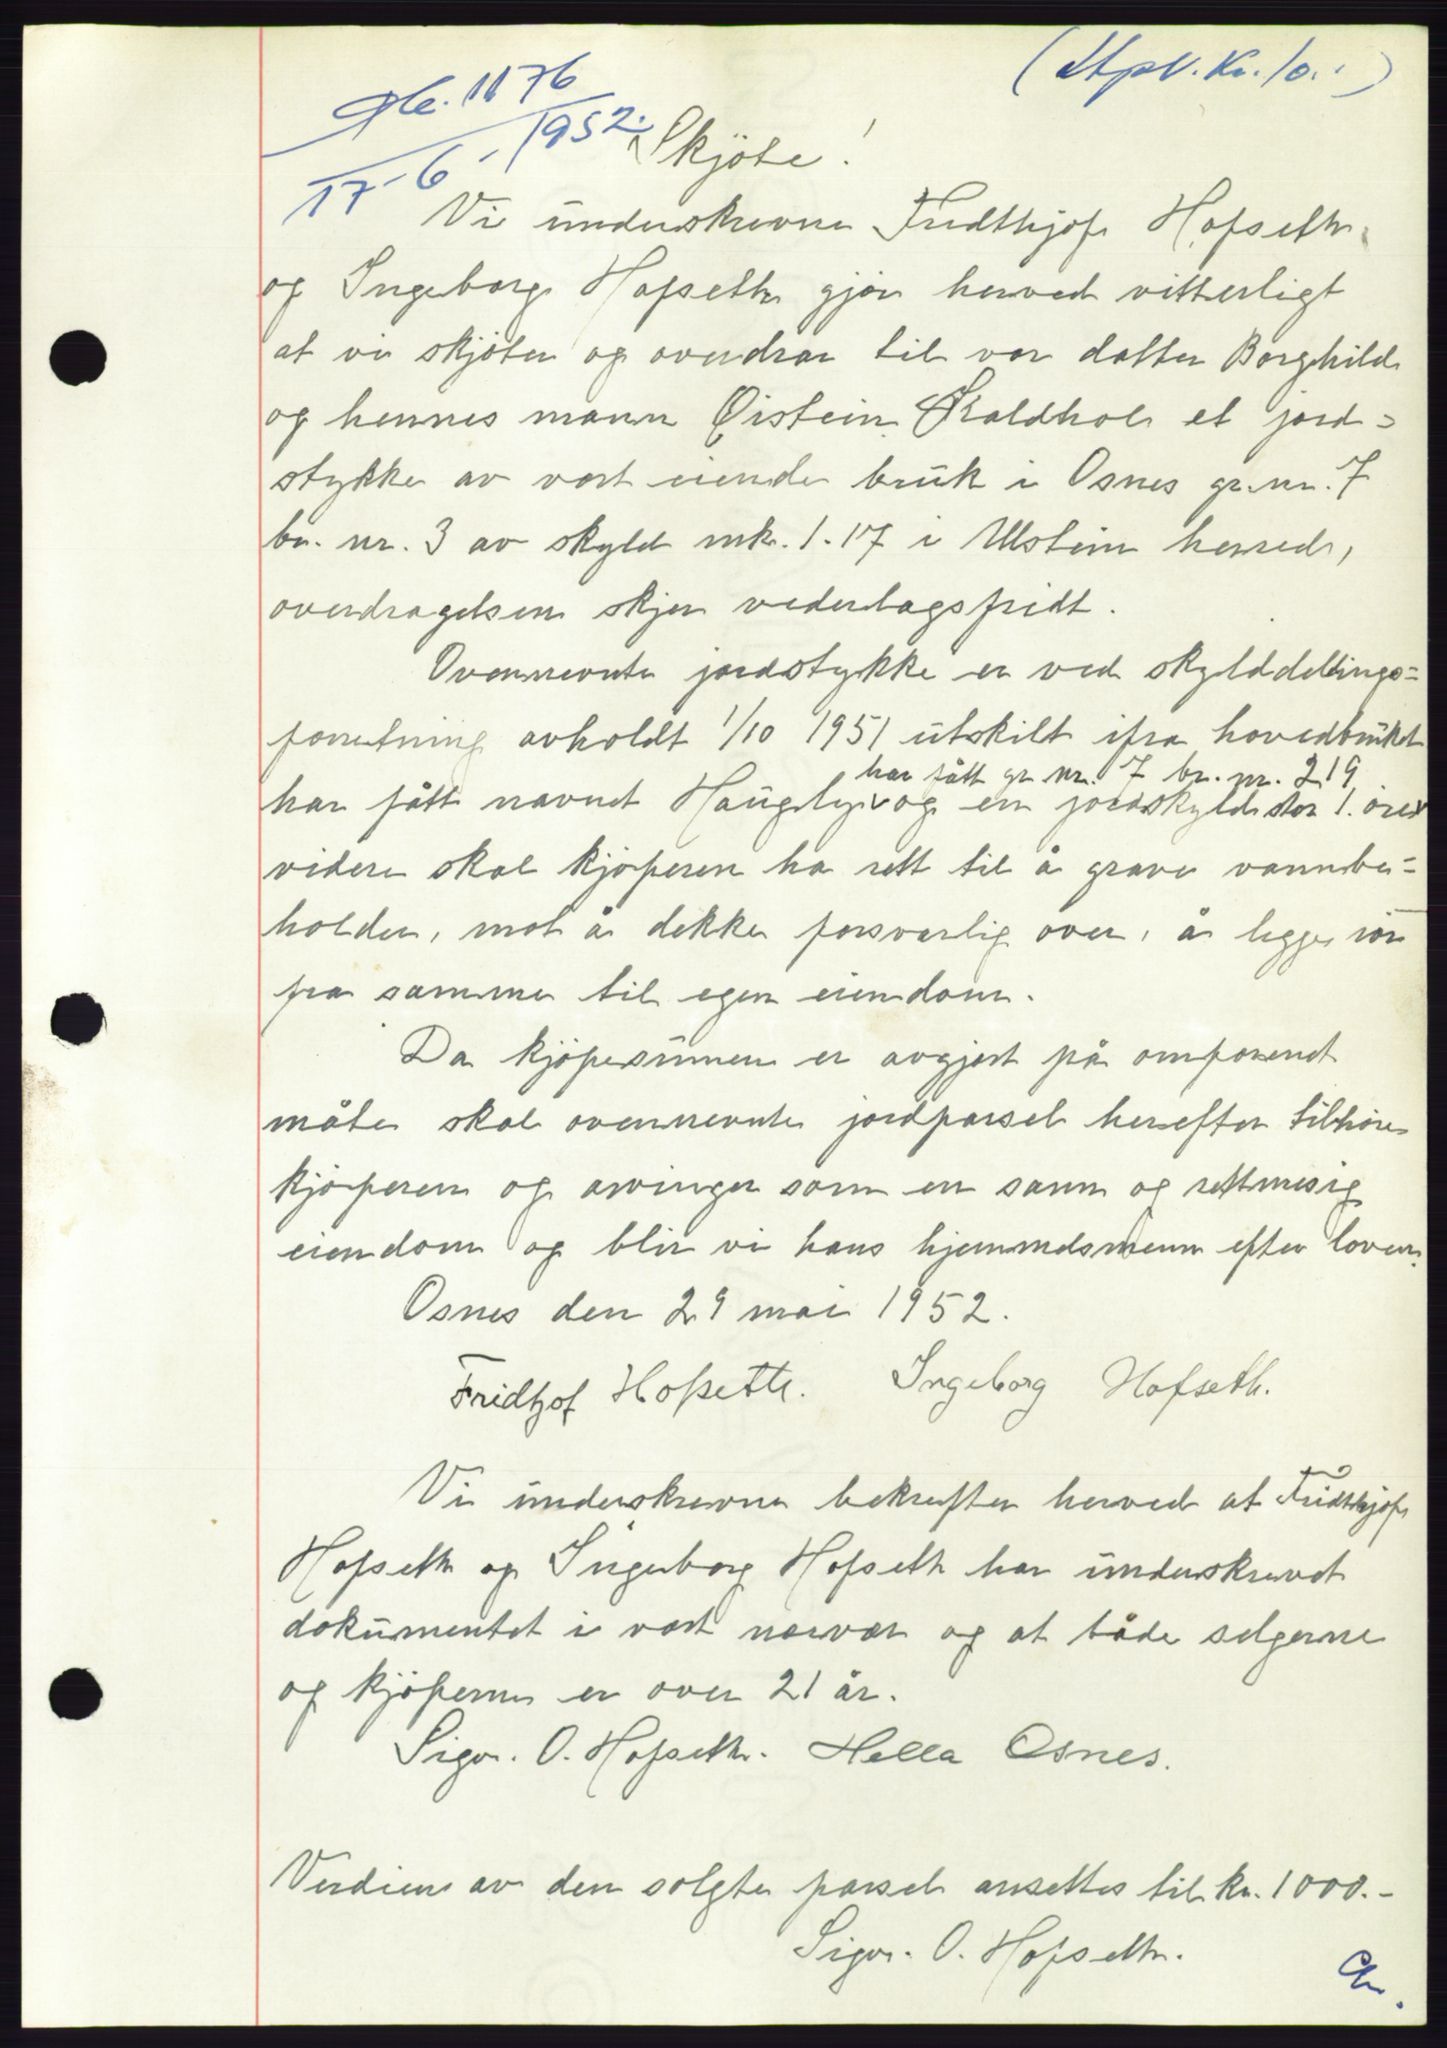 (Stpl. Kr. 10.-)
Gb. 1176
17-6-1952.
Skjöte!
Vi underskrevne Fridthjof Hofseth
og Ingeborg Hofseth gjör herved vitterligt
at vi skjöter og overdrar til vor datter Borghild
og hennes mann Øistein Kaldhol et jord=
stykke av vort eiende bruk i Osnes gr. nr. 7
br. nr. 3 av skyld mk. 1.17 i Ulstein herred,
overdragelsen skjer vederlagsfridt.
Ovennevnte jordstykke er ved skylddelings=
forretning avholdt 1/10 1951 utskilt ifra hovedbruket
har fått gr nr. 7 br. nr. 219
har fått navnet Haugly v og en jordskyld stor 1. öre
videre skal kjöperen ha rett til å grave vannbe=
holder, mot å dekke forsvarlig over, å legge rör
fra samme til egen eiendom.
Da kjöpesumen er avgjort på omforenet
måte skal ovennevnte jordparsel herefter tilhöre
kjöperen og arvinger som en sann og rettmesig
eiendom og blir vi hans hjemmelsmenn efter loven.
Osnes den 29 mai 1952.
Fridtjof Hofseth. Ingeborg Hofseth.
Vi underskrevne bekrefter herved at Fridthjof
Hofseth og Ingeborg Hofseth har underskrevet
dokumentet i vort nærvær og at både selgerne
og kjöperne er over 21 år.
Sigv. O. Hofseth. Hella Osnes.
Verdien av den solgte parsel ansettes til kr. 1000.-
Sigv. O. Hofseth.